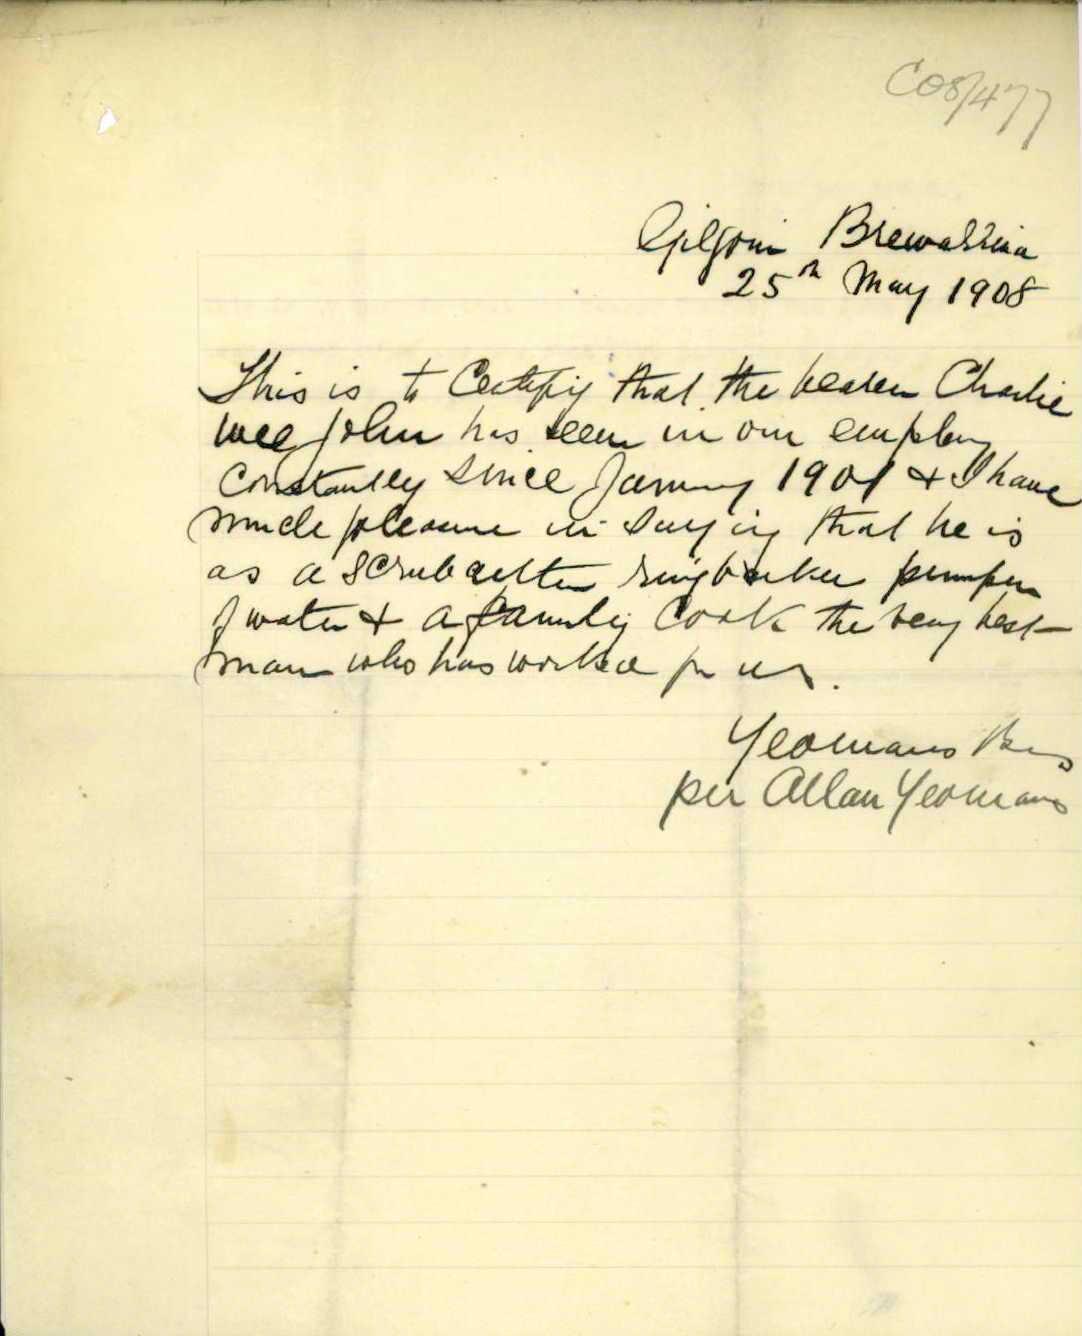 C08/477
Gilgoin Brewarrina
25th May 1908
This is to Certify that the bearer Charlie
Wee John has been in our employ
constantly since January 1901 & I have
much pleasure in saying that he is
as a scrubcutter ringbarker pumper
of water & a family Cook the very best
man who has worked for us.
Yeomans Bros
per Allan Yeomans